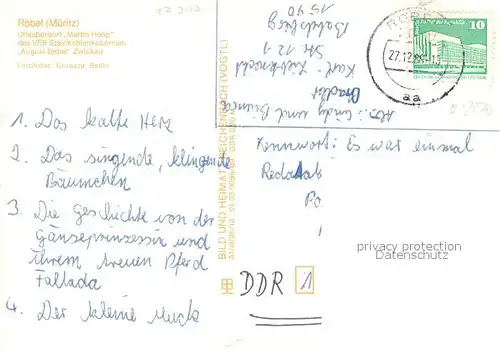 Röbel (Müritz)
Urlauberdorf „Martin Hoop“
des VEB Steinkohlenkokereien
„August Bebel“ Zwickau
1. Das kalte Herz
2. Das singende, klingende
Bäumchen
3. Die Geschichte von der
Gänseprinzessin und
ihrem treuen Pferd
Fallada
4. Der kleine Muck
BILD UND HEIMAT REICHENBACH (VOGTL)
Abs.: Cindy und Bianca
Karl-Liebknecht
Str 121
Babelsberg
1590
RÖBEL
27.12.
aa
10
Kennwort: Es war einmal
Redaktion
Po
1
DDR 1
privacy protection
Datenschutz